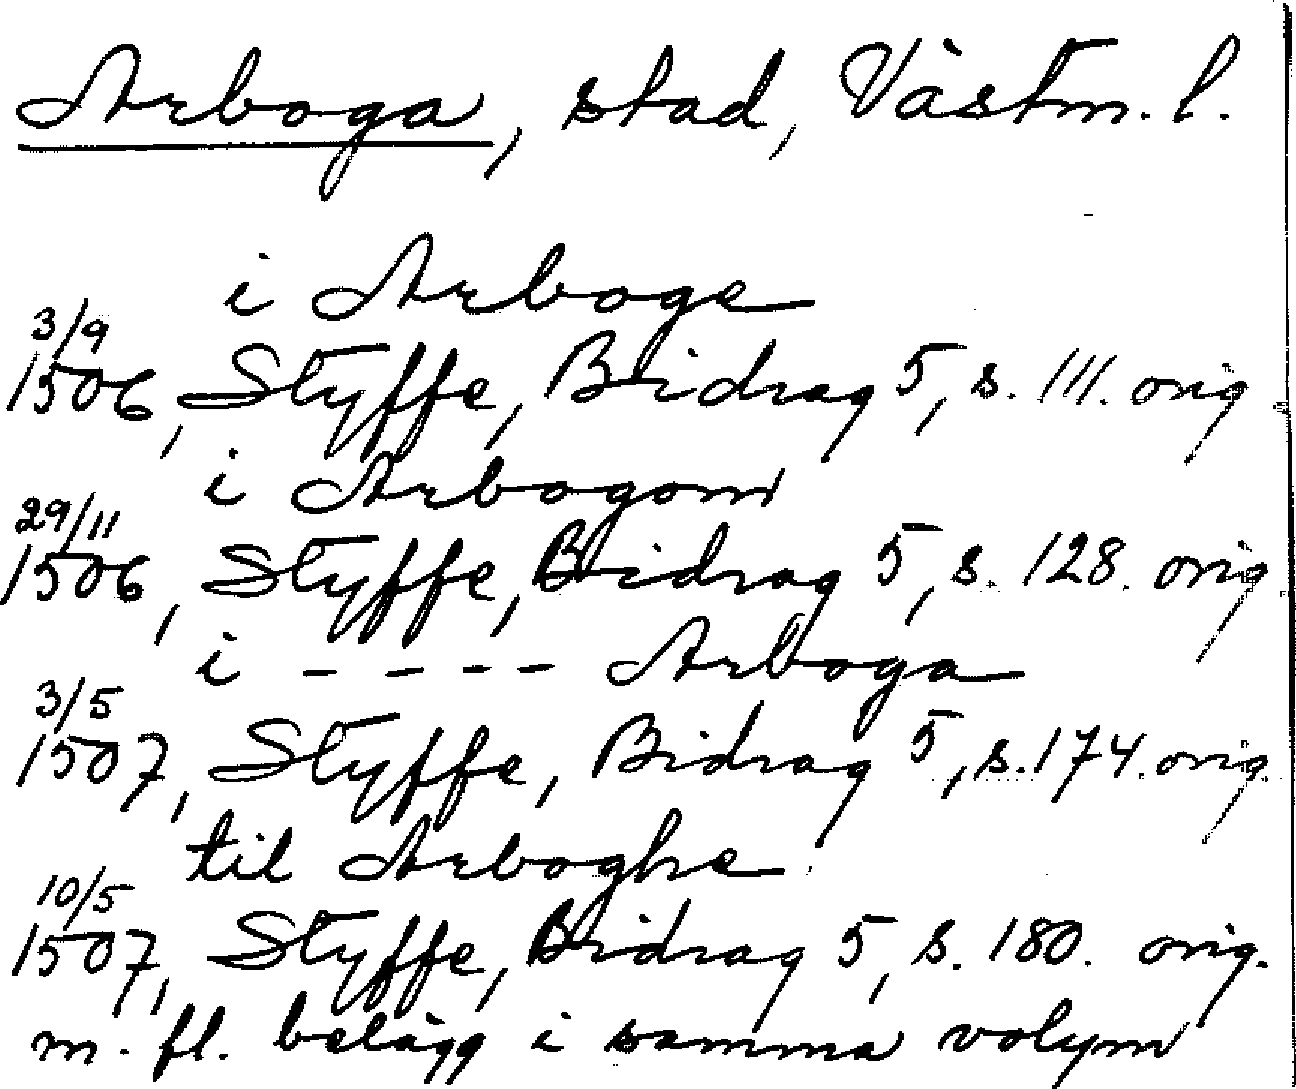 Arboga, stad, Västm. l.
i Arboge
3/9
1506, Styffe, Bidrag 5, s. 111. orig
i Arbogom
29/11
1506, Styffe, Bidrag 5, s. 128. orig
i - - - - Arboga
3/5
1507, Styffe, Bidrag 5, s. 174. orig
til Arboghe
10/5
1507, Styffe, Bidrag 5, s. 180. orig.
m. fl. belägg i samma volym